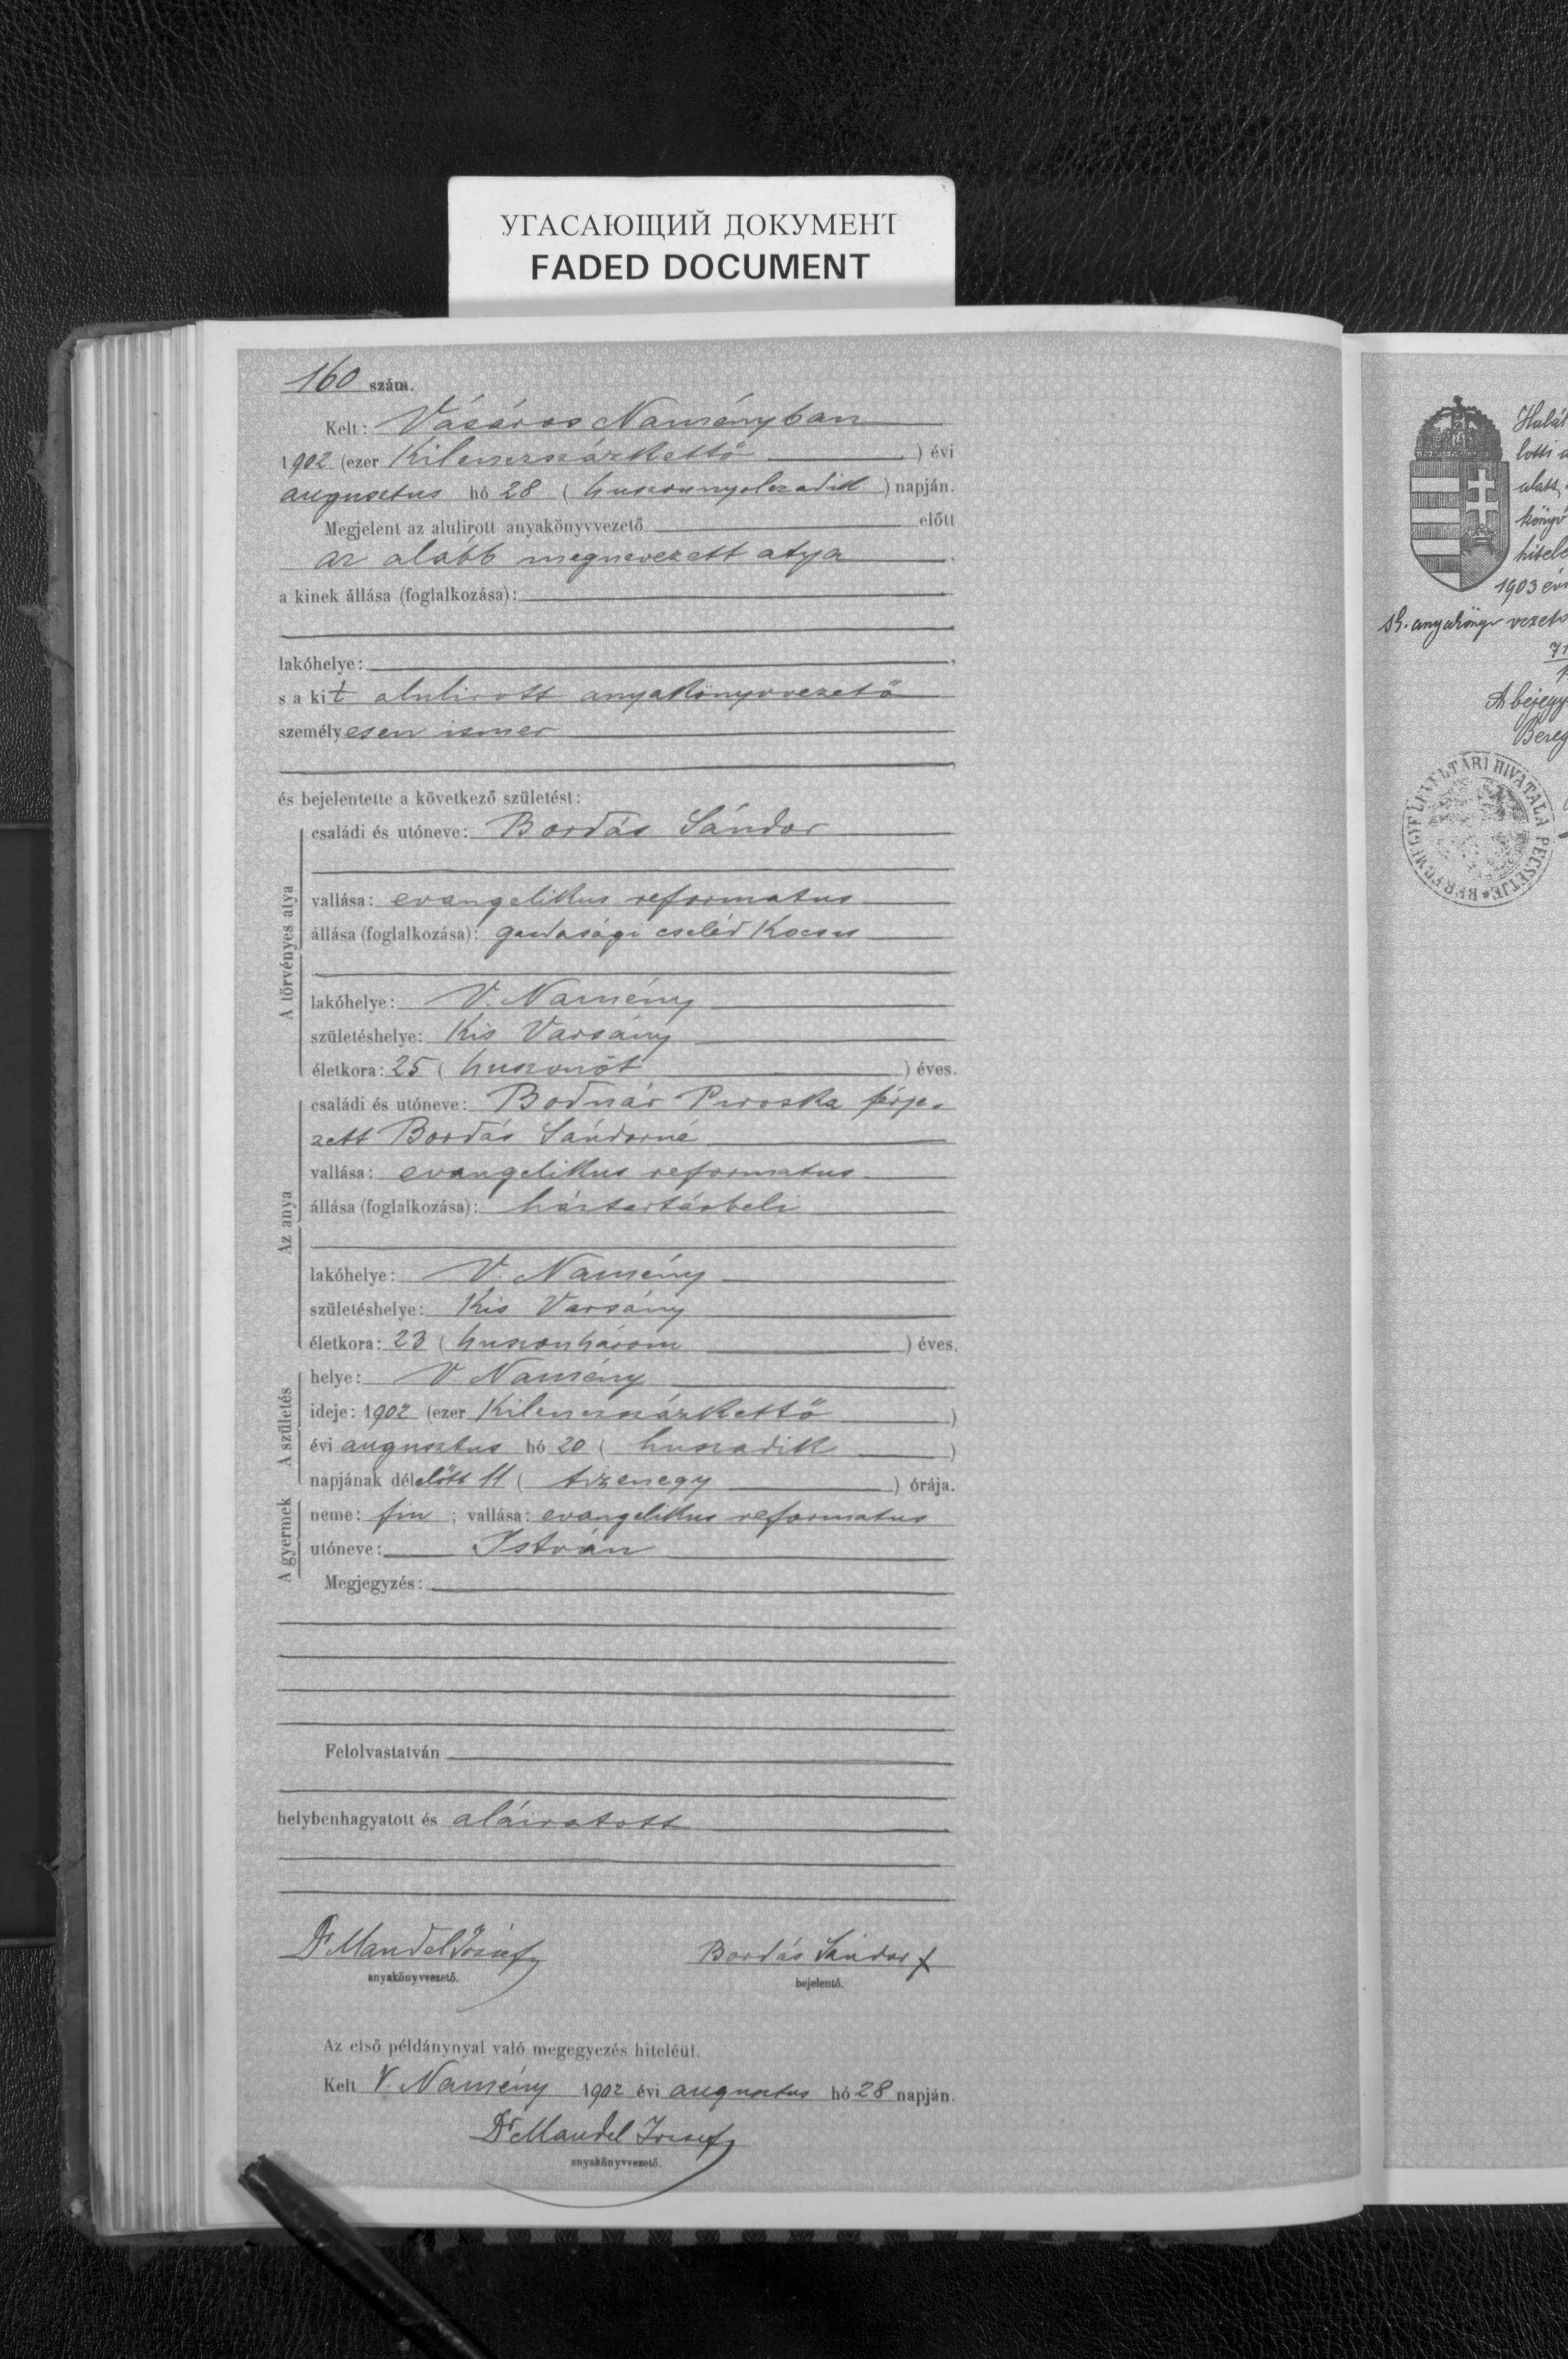 УГАСАЮЩИЙ ДОКУМЕНТ
FADED DOCUMENT
160 szám.
Kelt: Vásáros Naményban
1902 (ezer Kilenczszázkettő ) évi
augusztus hó 28 ( huszonnyolczadik ) napján.
Megjelent az alulirott anyakönyvvezető előtt
az alább megnevezett atya
a kinek állása (foglalkozása):
lakóhelye:
s a kit alulirott anyakönyvvezető
személyesen ismer
és bejelentette a következő születést:
A törvényes atya
családi és utóneve: Bordás Sándor
vallása: evangelikus reformatus
állása (foglalkozása): gazdasági cseléd Kocsis
lakóhelye: V. Namény
születéshelye: Kis Varsány
életkora: 25 ( huszonöt ) éves.
Az anya
családi és utóneve: Bodnár Piroska férje-
zett Bordás Sándorné
vallása: evangelikus reformatus
állása (foglalkozása): háztartásbeli
lakóhelye: V. Namény
születéshelye: Kis Varsány
életkora: 23 ( huszonhárom ) éves.
A születés
helye: V. Namény
ideje: 1902 (ezer Kilenczszázkettő )
évi augusztus hó 20 ( huszadik )
napjának délelőtt 11 ( tizenegy ) órája.
A gyermek
neme: fiu ; vallása: evangelikus reformatus
utóneve: István
Megjegyzés:
Felolvastatván
helybenhagyatott és aláiratott
Dr Mandel József
anyakönyvvezető.
Bordás Sándor
bejelentő.
Az első példánynyal való megegyezés hiteléül.
Kelt V. Namény 1902 évi augusztus hó 28 napján.
Dr Mandel József
anyakönyvvezető.
alatt
hitele
1903 évi
sh. anyakönyv vezető
A bejegy
Bereg
LEVÉLTÁRI HIVATALA PECSÉTJE